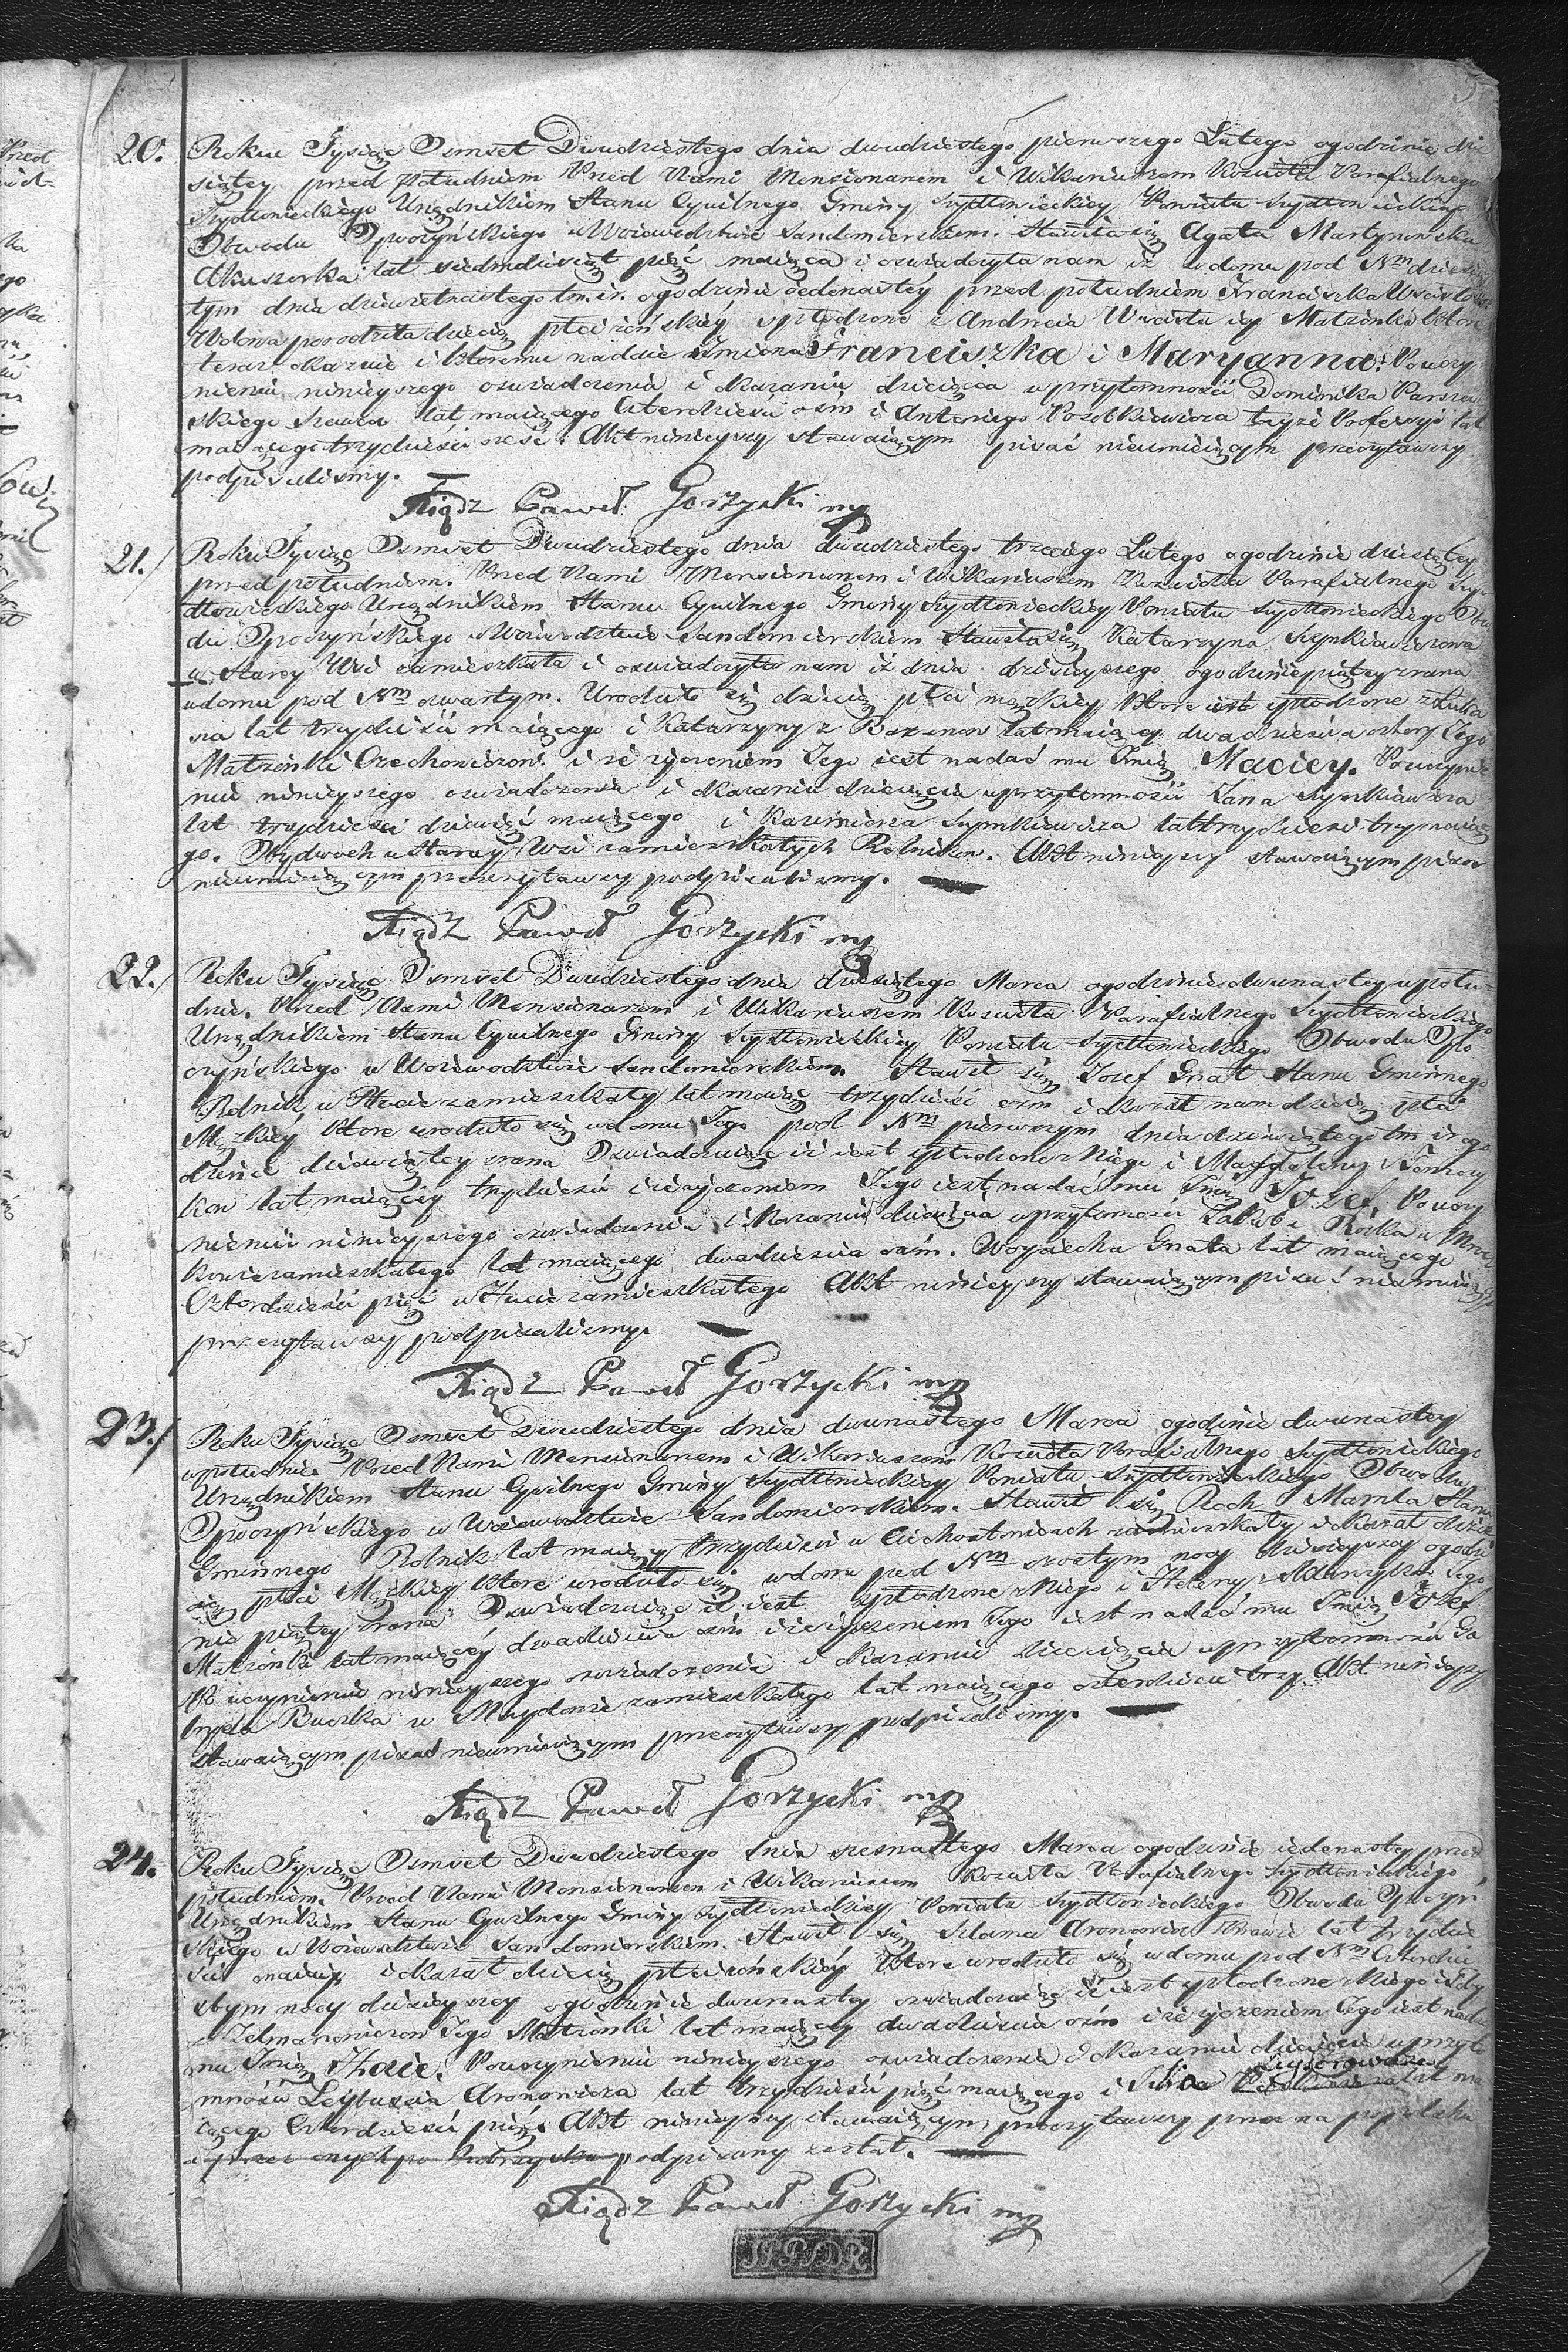 20. Roku Tysiąc Osmset Dwudziestego dnia dwudziestego pierwszego Lutego ogodzinie dzie
siątey przed południem Przed Nami Mensionarem i Wikariuszem Kościoła Parafialnego
Szydłowieckiego Urzędnikiem Stanu Cywilnego Gminy Szydłowieckiey Powiatu Szydłowieckiego
Obwodu Opoczyńskiego w Wojewodztwie Sandomierskiem. Stawiła się Agata Martynowska
Akuszerka lat siedmdziesiąt pięć maiąca i oswiadczyła nam iż w domu pod Nrm dziesią
tym dnia dziewietnastego tm. ir. ogodzinie iedenastey przed południem Franciszka
Wdowa porodziła dziecię płci żeńskiéy spłodzone z Andrzeia Wscisła iey Małżonka które
teraz okazuie i któremu nadaie imiona Franciszka i Maryanna. Po uczy
nieniu ninieyszego oswiadczenia i okazaniu dziecięcia w przytomności Dominika
skiego Szewca lat maiącego czterdzieści ośm i Antoniego teyże Professyi lat
maiącego trzydzieści sześć. Akt ninieyszy stawaiącym pisać nieumieiącym przeczytawszy
podpisaliśmy.
Xiądz Paweł Gorzycki mp
21. Roku Tysiąc Osmset Dwudziestego dnia Dwudziestego trzeciego Lutego ogodzinie dziesiątey
przed południem. Przed Nami Mensionarem i Wikariuszem Kościoła Parafialnego Szy
dłowieckiego Urzędnikiem Stanu Cywilnego Gminy Szydłowieckiey Powiatu Szydłowieckiego Obwo
du Opoczyńskiego w Woiewodztwie Sandomierskiem Stawiła się Katarzyna Szynkiewiczowa
w Starey Wsi zamieszkała i oswiadczyła nam iż dnia dzisieyszego ogodzinie piątey zrana
w domu pod Nrm czwartym. Urodziło się dziecię płci męzkiey które iest spłodzone z Łuka
sza lat trzydzieści maiącego i Katarzyny z lat maiącey dwadzieścia cztery Jego
Małżonki Orzechowiczow i że życzeniem Jego iest nadać mu Imię Maciey. Po uczynie
niu ninieyszego oswiadczenia i okazaniu dziecięcia w przytomności Jana Szynkiewicza
lat trzydzieści dziewięć maiącego i Kazimierza Szynkiewicza lat trzydzieści trzy maiące
go. Obydwoch w Starey Wsi zamieszkałych Rolnikow. Akt ninieyszy stawaiącym pisać
nieumieiącym przeczytawszy podpisaliśmy.
Xiądz Paweł Gorzycki mp
22. Roku Tysiąc Osmset Dwudziestego dnia dziesiątego Marca ogodzinie dwunastey w połu
dnie. Przed Nami Mensionarem i Wikariuszem Kościoła Parafialnego Szydłowieckiego
Urzędnikiem Stanu Cywilnego Gminy Szydłowieckiey Powiatu Szydłowieckiego Obwodu Opo
czyńskiego w Woiewodztwie Sandomierskiem. Stawił się Jozef Gnat Stanu Gminnego
Rolnik w Hucie zamieszkały lat maiący trzydzieści ośm i okazał nam dziecię płci
Męzkiéy które urodziło się w domu Jego pod Nrm pierwszym dnia dziewiątego tm. ir. ogo
dzinie dziewiątey zrana Oswiadczaiąc iż iest spłodzone z Niego i Magdaleny z
kow lat maiącéy trzydzieści i że życzeniem Jego iest nadać mu Imię Jozef. Po uczy
nieniu ninieyszego oswiadczenia i okazaniu dziecięcia w przytomności Jakuba w
zamieszkałego lat maiącego dwadzieścia ośm. Woyciecha Gnata lat maiącego
Czterdzieści pięć w Hucie zamieszkałego Akt ninieyszy stawaiącym pisać nieumieiącym
przeczytawszy podpisaliśmy.
Xiądz Paweł Gorzycki mp
23. Roku Tysiąc Osmset Dwudziestego dnia dwunastego Marca ogodzinie dwunastey
w południe. Przed Nami Mensionarem i Wikariuszem Kościoła Parafialnego Szydłowieckiego
Urzędnikiem Stanu Cywilnego Gminy Szydłowieckiey Powiatu Szydłowieckiego Obwodu
Opoczyńskiego w Woiewodztwie Sandomierskiem. Stawił się Roch Mamla Stanu
Gminnego Rolnik lat maiący trzydzieści w Ciechostowicach zamieszkały i okazał dzie
cię płci Męzkiey które urodziło się w domu pod Nrm szostym nocy dzisieyszey ogodzi
nie piątey zrana Oswiadczaiąc iż iest spłodzone z Niego i Heleny z Jego
Małżonki lat maiącéy dwadzieścia ośm i że życzeniem Jego iest nadać mu Imię Józef
Po uczynieniu ninieyszego oswiadczenia i okazaniu dziecięcia w przytomności Ga
bryela w Maydowie zamieszkałego lat maiącego czterdzieści trzy. Akt ninieyszy
stawaiącym pisać nieumieiącym przeczytawszy podpisaliśmy.
Xiądz Paweł Gorzycki mp
24. Roku Tysiąc Osmset Dwudziestego dnia szesnastego Marca ogodzinie iedenastey przed
południem. Przed Nami Mensionarem i Wikariuszem Kościoła Parafialnego Szydłowieckiego
Urzędnikiem Stanu Cywilnego Gminy Szydłowieckiey Powiatu Szydłowieckiego Obwodu Opoczyń
skiego w Woiewodztwie Sandomierskiem. Stawił się Szlama Aronowicz Krawiec lat trzydzie
ści maiący i okazał dziecię płci żeńskiéy które urodziło się w domu pod Nrm
stym nocy dzisieyszey ogodzinie dwunastey oswiadczaiąc iż iest spłodzone z Niego i
z Zelmanowiczow Jego Małżonki lat maiącey dwadzieścia ośm i że życzeniem Jego iest nadać
mu Imię Po uczynieniu ninieyszego oswiadczenia i okazaniu dziecięcia w przyto
mności Leybusia Aronowicza lat trzydzieści pięć maiącego i lat ma
iącego Czterdzieści pięć. Akt ninieyszy stawaiącym przeczytawszy
podpisany został.
Xiądz Paweł Gorzycki mp